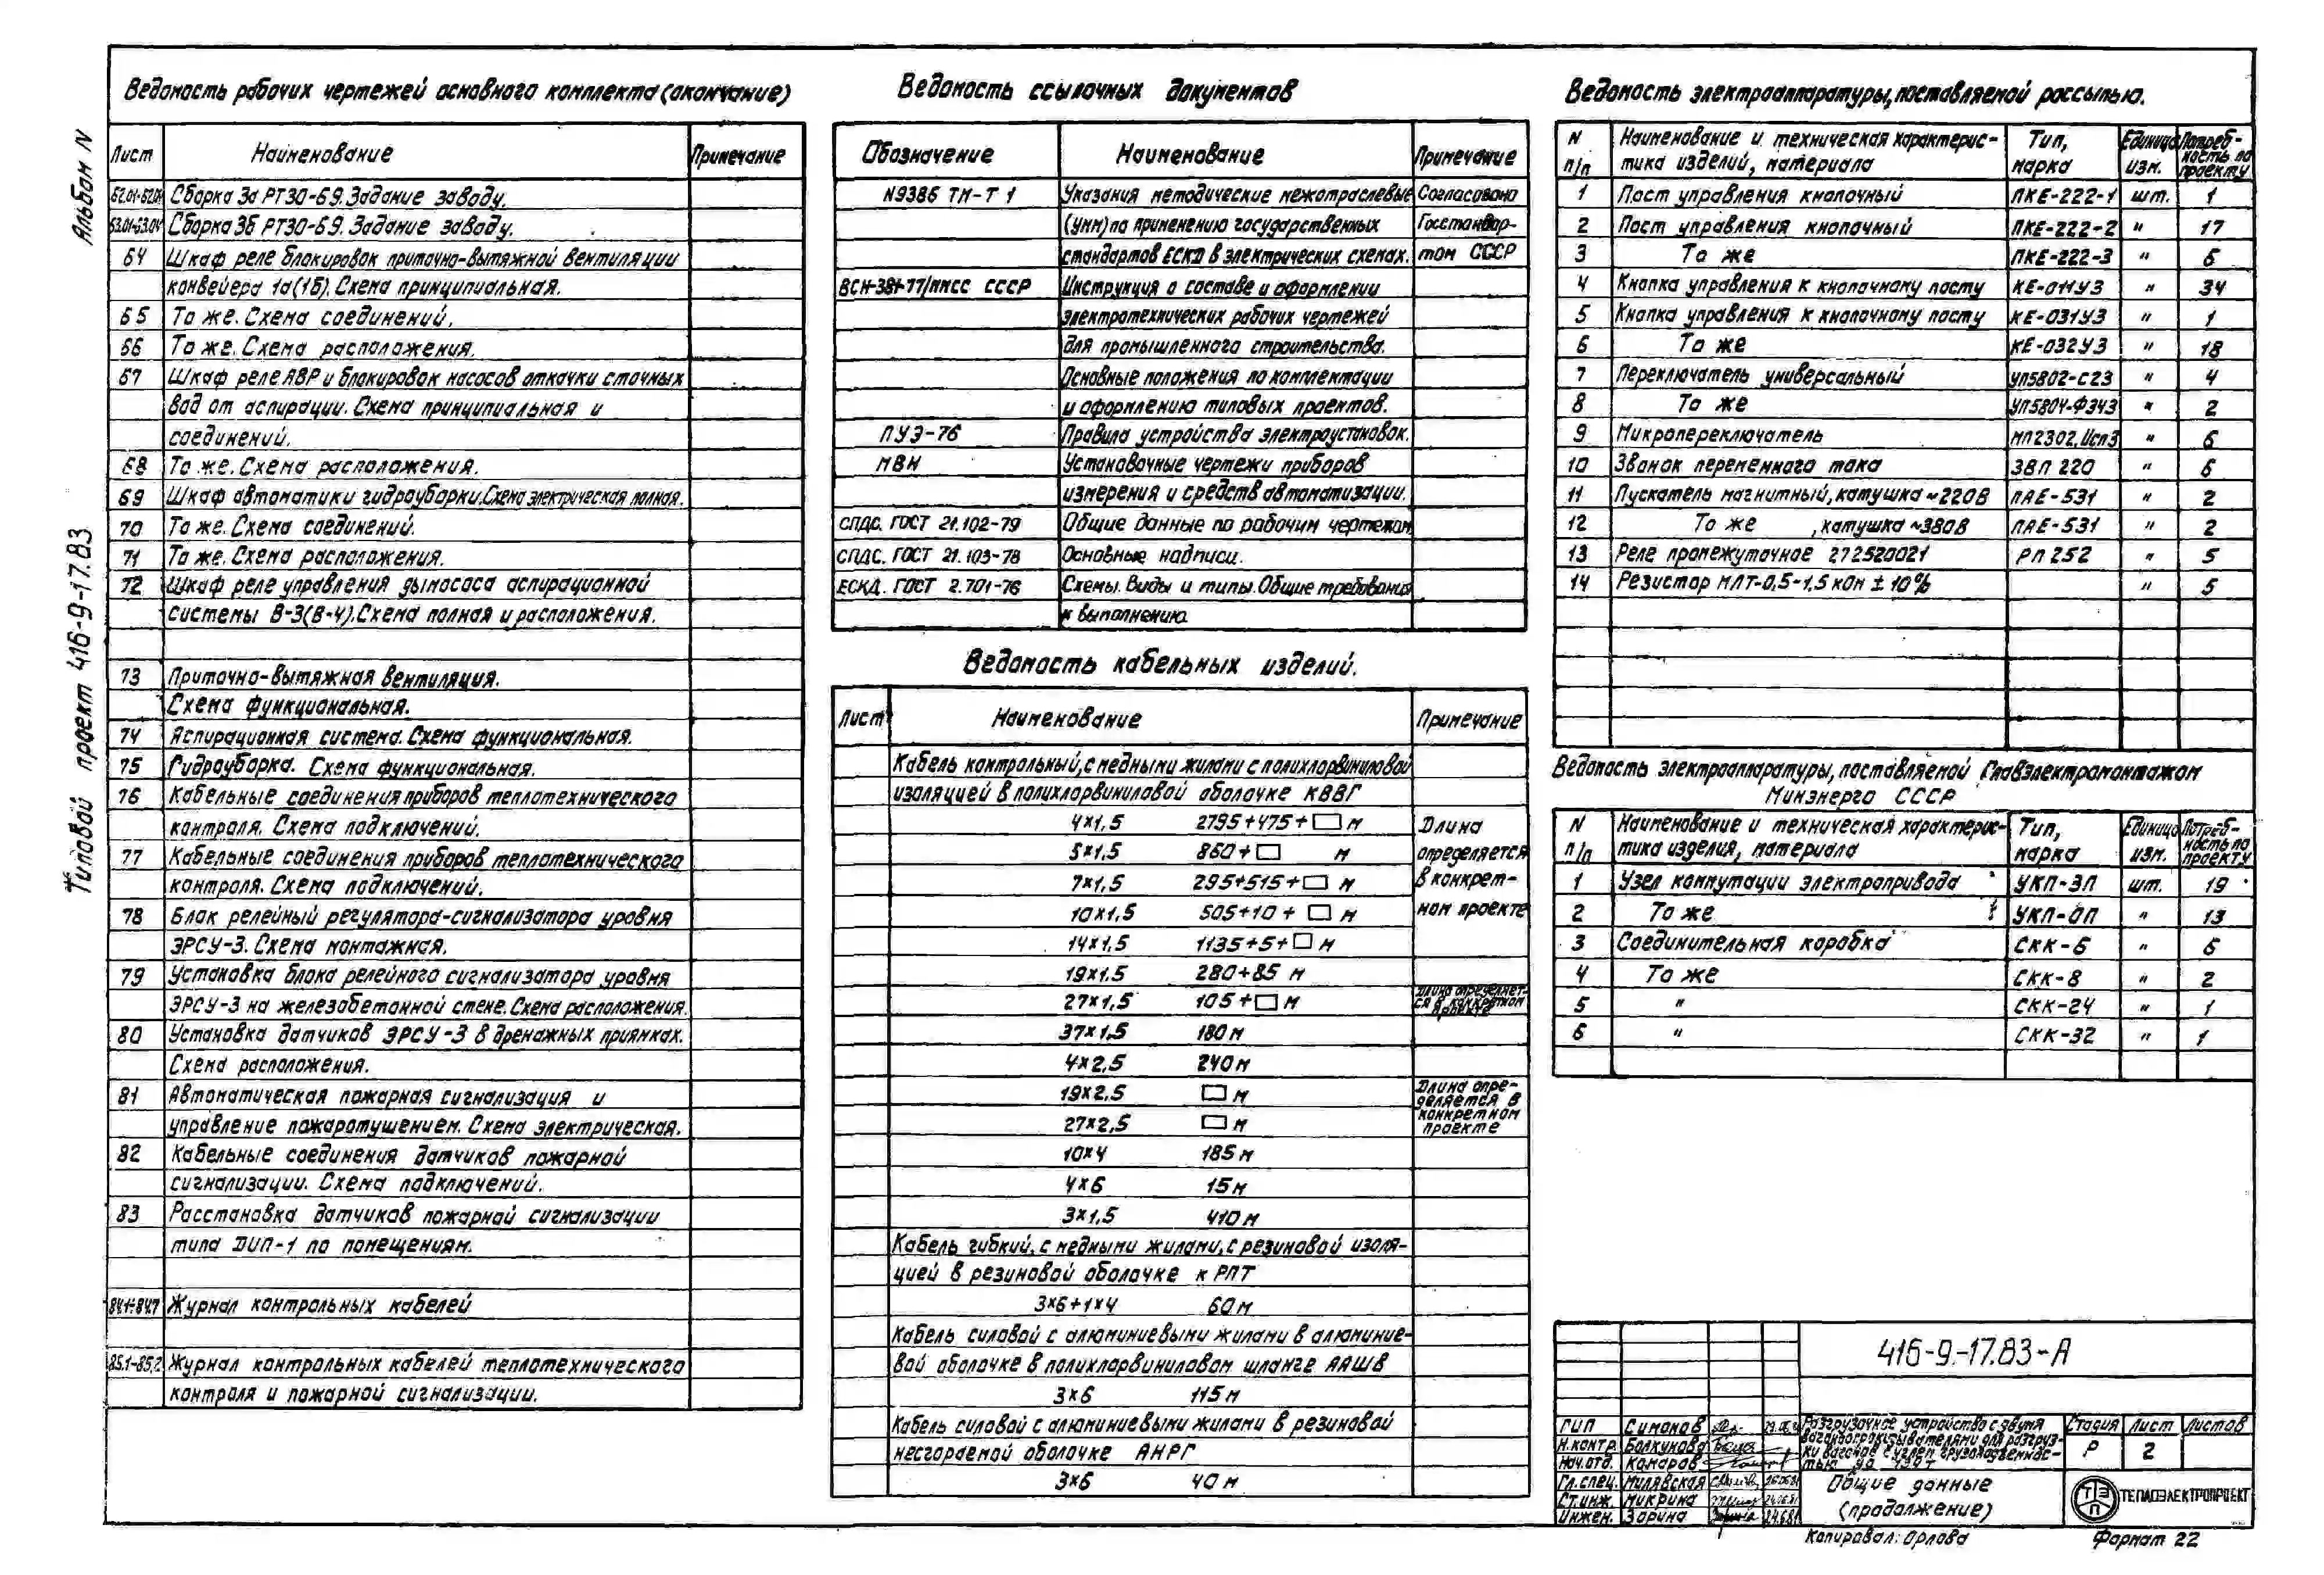 Альбом IV
Типовой проект 416-9-17.83
Ведомость рабочих чертежей основного комплекта (окончание)
Лист Наименование Примечание
Сборка 3а РТ30-69. Задание заводу.
Сборка 3б РТ30-69. Задание заводу.
64 Шкаф реле блокировок приточно-вытяжной вентиляции
конвейера 1а(1б). Схема принципиальная.
65 То же. Схема соединений.
66 То же. Схема расположения.
67 Шкаф реле АВР и блокировок насосов откачки сточных
вод от аспирации. Схема принципиальная и
соединений.
68 То же. Схема расположения.
69 Шкаф автоматики гидроуборки. Схема электрическая полная.
70 То же. Схема соединений.
71 То же. Схема расположения.
72 Шкаф реле управления дымососа аспирационной
системы В-3(В-4). Схема полная и расположения.
73 Приточно-вытяжная вентиляция.
Схема функциональная.
74 Аспирационная система. Схема функциональная.
75 Гидроуборка. Схема функциональная.
76 Кабельные соединения приборов теплотехнического
контроля. Схема подключений.
77 Кабельные соединения приборов теплотехнического
контроля. Схема подключений.
78 Блок релейный регулятора-сигнализатора уровня
ЭРСУ-3. Схема монтажная.
79 Установка блока релейного сигнализатора уровня
ЭРСУ-3 на железобетонной стене. Схема расположения.
80 Установка датчиков ЭРСУ-3 в дренажных приямках.
Схема расположения.
81 Автоматическая пожарная сигнализация и
управление пожаротушением. Схема электрическая.
82 Кабельные соединения датчиков пожарной
сигнализации. Схема подключений.
83 Расстановка датчиков пожарной сигнализации
типа ДИП-1 по помещениям.
84.1÷84.7 Журнал контрольных кабелей
85.1-85.2 Журнал контрольных кабелей теплотехнического
контроля и пожарной сигнализации.
Ведомость ссылочных документов
Обозначение Наименование Примечание
N9386 ТМ-Т 1 Указания методические межотраслевые Согласовано
(УММ) по применению государственных Госстандар-
стандартов ЕСКД в электрических схемах. том СССР
ВСН-381-77/ММСС СССР Инструкция о составе и оформлении
электротехнических рабочих чертежей
для промышленного строительства.
Основные положения по комплектации
и оформлению типовых проектов.
ПУЭ-76 Правила устройства электроустановок.
МВН Установочные чертежи приборов
измерения и средств автоматизации.
СПДС. ГОСТ 21.102-79 Общие данные по рабочим чертежам
СПДС. ГОСТ 21.103-78 Основные надписи.
ЕСКД. ГОСТ 2.701-76 Схемы. Виды и типы. Общие требования
к выполнению.
Ведомость кабельных изделий.
Лист Наименование Примечание
Кабель контрольный, с медными жилами с полихлорвиниловой
изоляцией в полихлорвиниловой оболочке КВВГ
4×1,5 2795+475+□ м Длина
5×1,5 860+□ м определяется
7×1,5 295+515+□ м в конкрет-
10×1,5 505+10+□ м ном проекте
14×1,5 1135+5+□ м
19×1,5 280+85 м
27×1,5 105+□ м Длина определяет-
ся в конкретном
проекте
37×1,5 180 м
4×2,5 240 м
19×2,5 □ м Длина опре-
деляется в
27×2,5 □ м конкретном
проекте
10×4 185 м
4×6 15 м
3×1,5 410 м
Кабель гибкий, с медными жилами, с резиновой изоля-
цией в резиновой оболочке к РПТ
3×6+1×4 60 м
Кабель силовой с алюминиевыми жилами в алюминие-
вой оболочке в полихлорвиниловом шланге ААШВ
3×6 115 м
Кабель силовой с алюминиевыми жилами в резиновой
несгораемой оболочке АНРГ
3×6 40 м
Ведомость электроаппаратуры, поставляемой россыпью.
N Наименование и техническая характерис- Тип, Единица Потреб-
п/п тика изделий, материала марка изм. ность по
проекту
1 Пост управления кнопочный ПКЕ-222-1 шт. 1
2 Пост управления кнопочный ПКЕ-222-2 " 17
3 То же ПКЕ-222-3 " 6
4 Кнопка управления к кнопочному посту КЕ-011У3 " 34
5 Кнопка управления к кнопочному посту КЕ-031У3 " 1
6 То же КЕ-032У3 " 18
7 Переключатель универсальный УП5802-С23 " 4
8 То же УП5804-Ф343 " 2
9 Микропереключатель МП2302, Исп3 " 6
10 Звонок переменного тока ЗВП 220 " 6
11 Пускатель магнитный, катушка ~220В ПАЕ-531 " 2
12 То же , катушка ~380В ПАЕ-531 " 2
13 Реле промежуточное 272520021 РП 252 " 5
14 Резистор МЛТ-0,5-1,5 кОм ± 10% " 5
Ведомость электроаппаратуры, поставляемой Главэлектромонтажом
Минэнерго СССР
N Наименование и техническая характерис- Тип, Единица Потреб-
п/п тика изделия, материала марка изм. ность по
проекту
1 Узел коммутации электропривода УКП-ЗП шт. 19
2 То же УКП-ОП " 13
3 Соединительная коробка СКК-6 " 6
4 То же СКК-8 " 2
5 " СКК-24 " 1
6 " СКК-32 " 1
416-9-17.83-А
ГИП Симонов
Н.контр. Болкунова
Нач.отд. Комаров
Гл.спец. Милявская
Ст.инж. Микрина 24.06.81
Инжен. Зорина 24.6.81
Разгрузочное устройство с двумя
вагоноопрокидывателями для разгруз-
ки вагонов с углем грузоподъемнос-
тью до
Стадия Лист Листов
Р 2
Общие данные
(продолжение)
ТЭП ТЕПЛОЭЛЕКТРОПРОЕКТ
Копировал: Орлова Формат 22